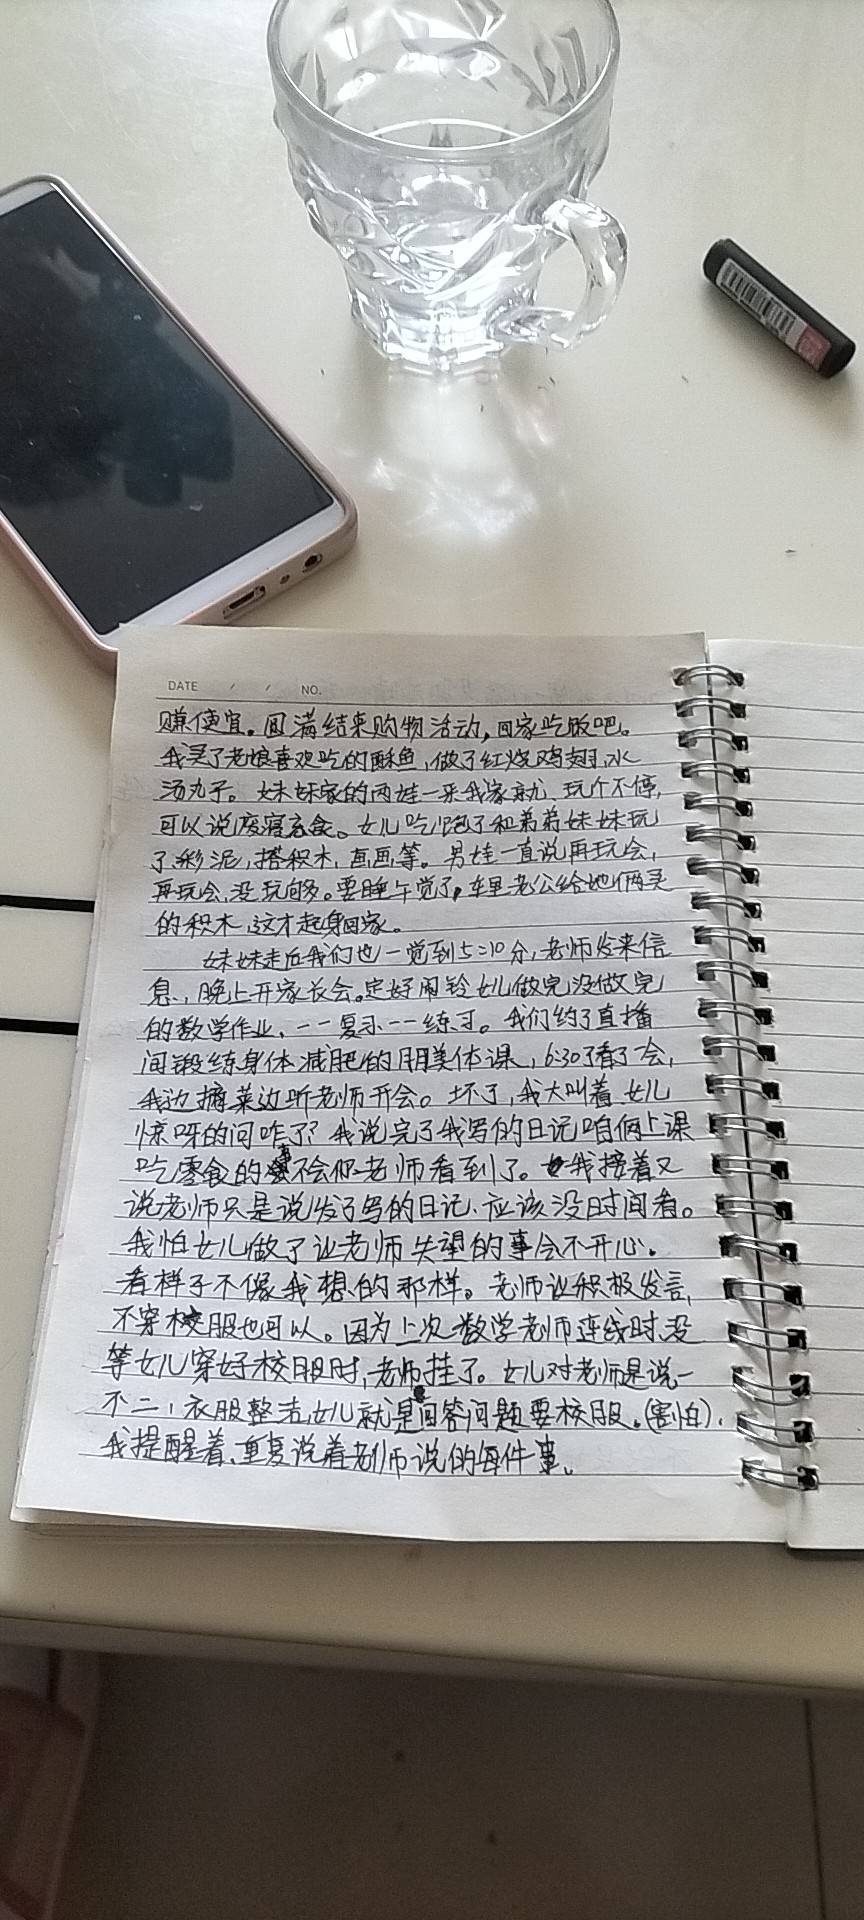 DATE / / NO.
赚便宜。圆满结束购物活动，回家吃饭吧。
我买了老娘喜欢吃的酥鱼，做了红烧鸡翅，水
汤丸子。妹妹家的两娃一来我家就、玩个不停，
可以说废寝忘食。女儿吃饱了和弟弟妹妹玩
了彩泥，搭积木，画画等。男娃一直说再玩会，
再玩会，没玩够。要睡午觉了，车里老公给她俩买
的积木，这才起身回家。
妹妹走后我们也一觉到5:10分，老师发来信
息，晚上开家长会。定好闹铃女儿做完没做完
的数学作业，一一复示一一练习。我们约了直播
间锻练身体减肥的朋美体课，6:30了看了会，
我边摘菜边听老师开会。坏了，我大叫着女儿
惊呀的问咋了？我说完了我写的日记咱俩上课
吃零食的事不会你老师看到了。我接着又
说老师只是说发了写的日记、应该没时间看。
我怕女儿做了让老师失望的事会不开心。
看样子不像我想的那样。老师让积极发言，
不穿校服也可以。因为上次数学老师连线时没
等女儿穿好校服时，老师挂了。女儿对老师是说一
不二，衣服整洁，女儿就是回答问题要校服。（害怕），
我提醒着、重复说着老师说的每件事、